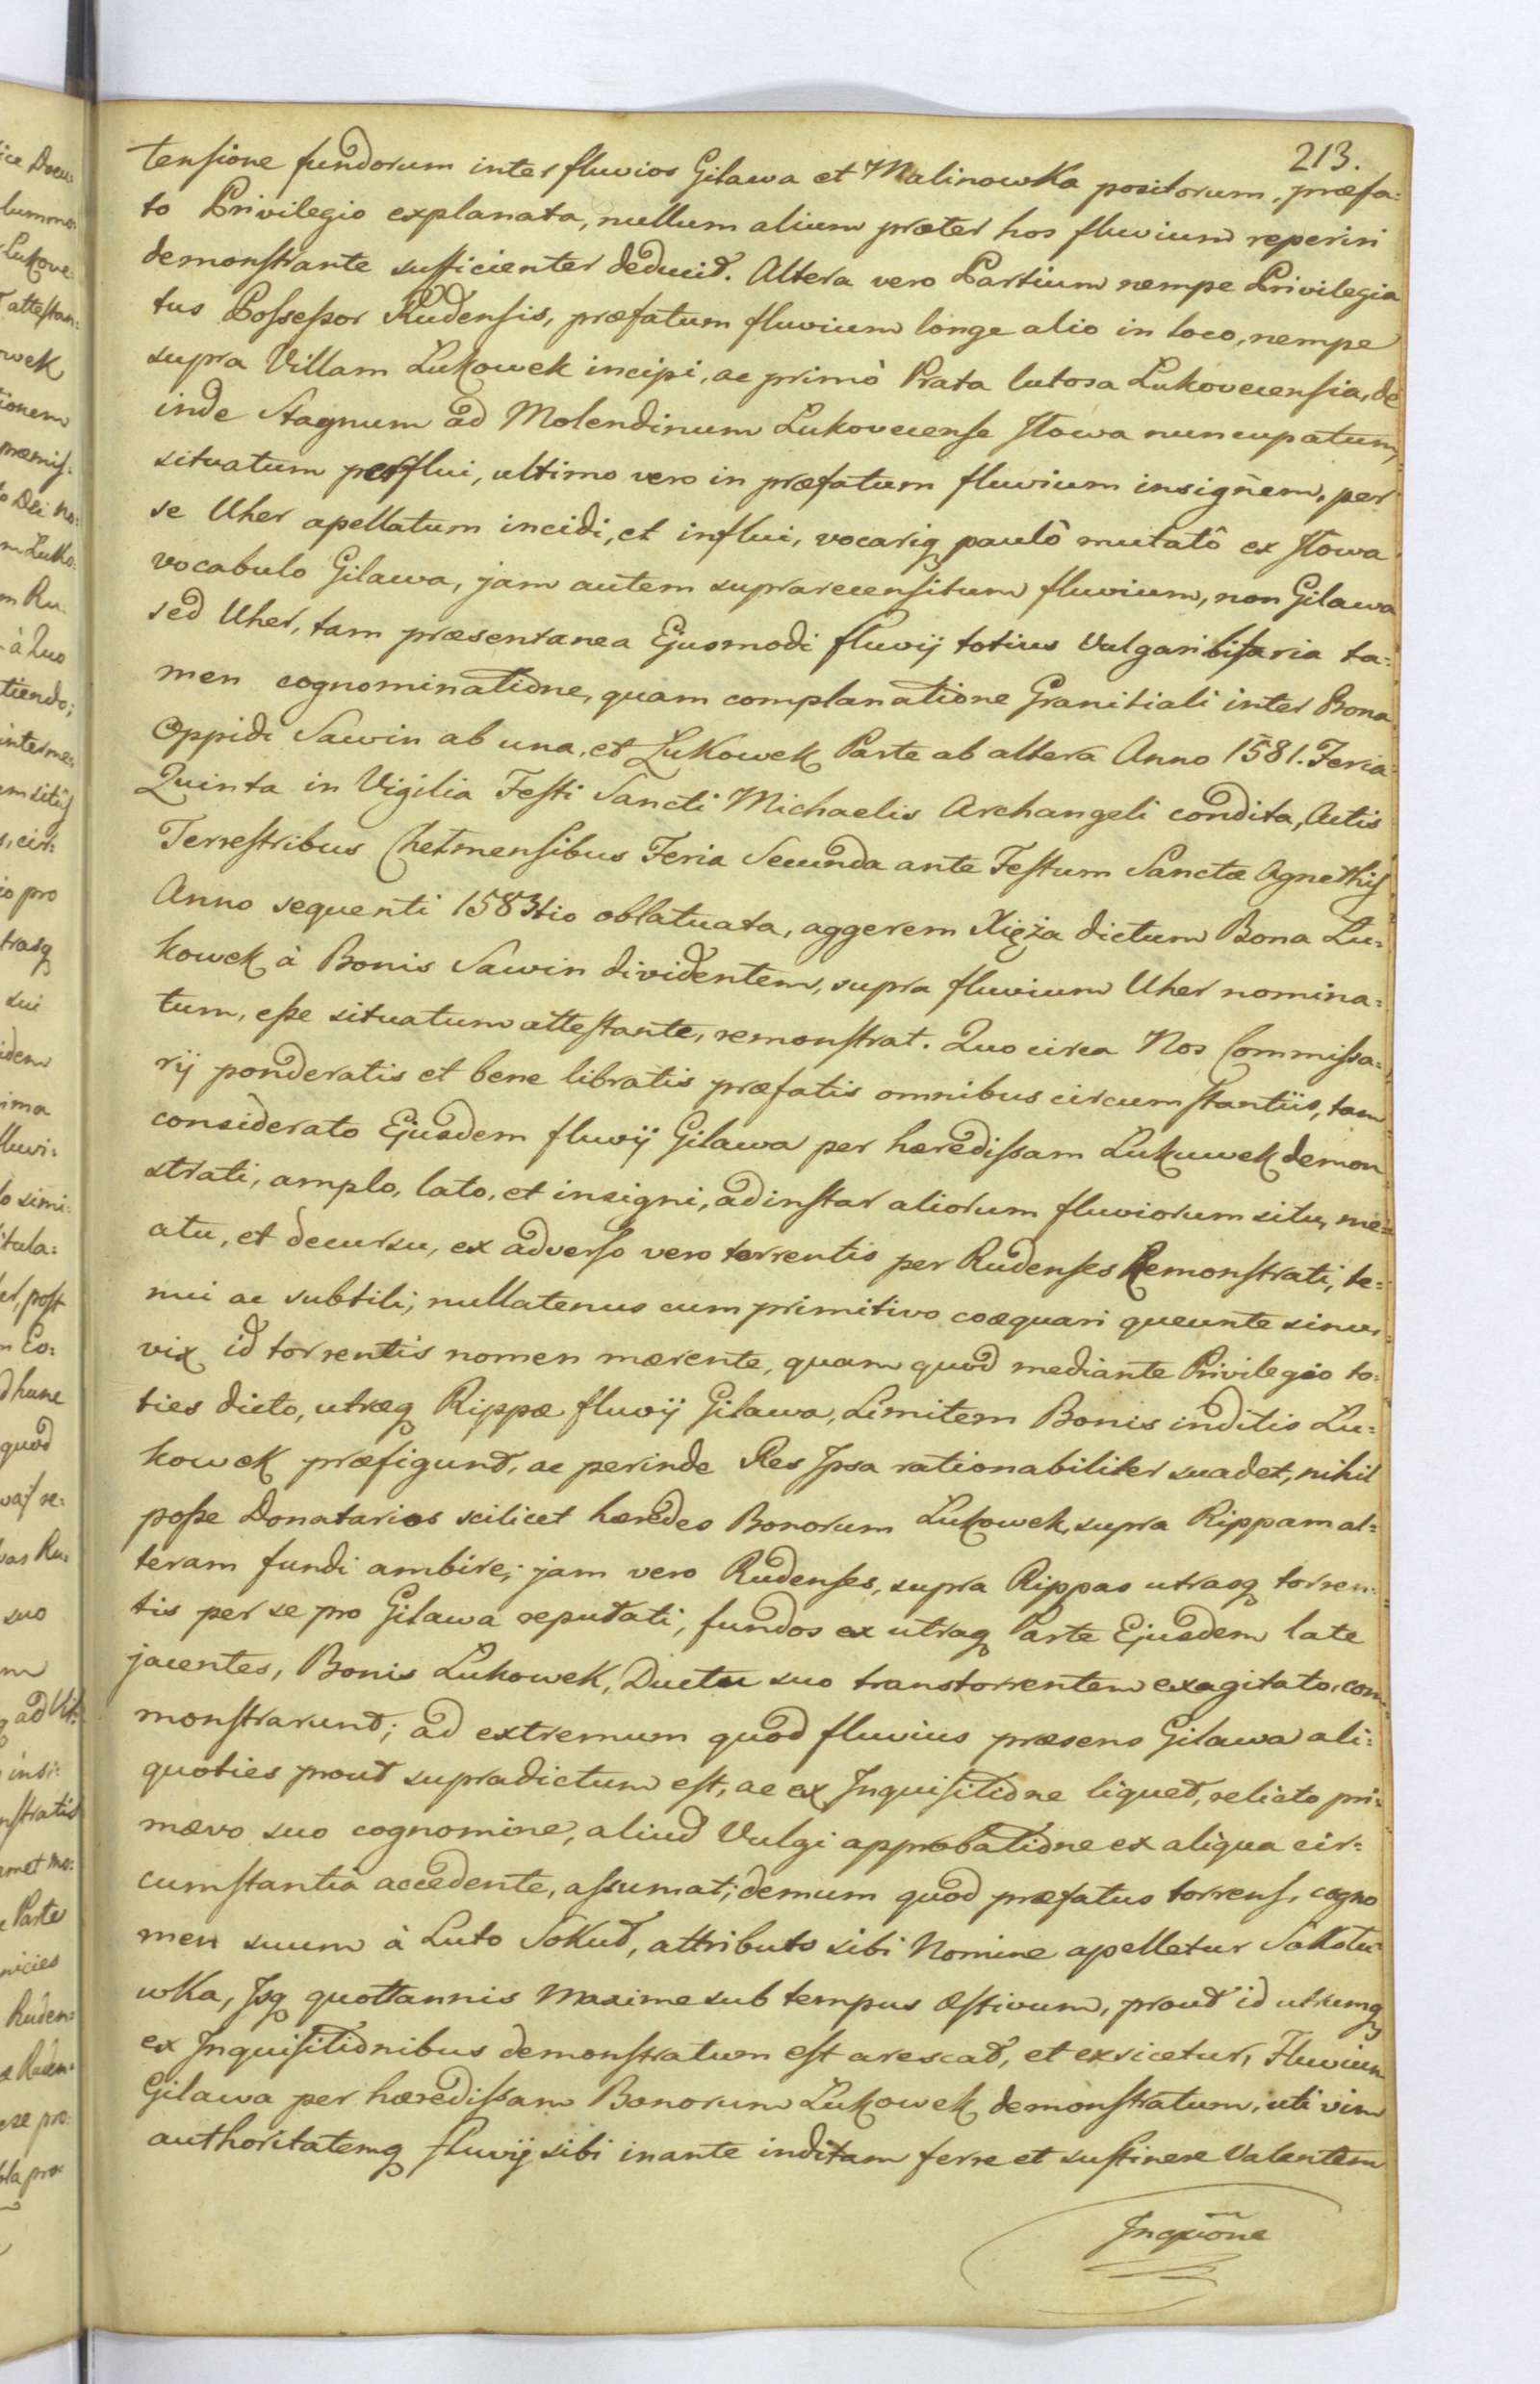 213.
tensione fundorum inter fluvios Gilawa et Malinowka positorum, præfa:
to Privilegio explanata, nullum alium præter hos fluvium reperiri
demonstrante sufficienter deducit. Altera vero Partium nempe Privilegia
tus Possessor Rudensis, præfatum fluvium longe alio in loco, nempe
supra Villam Lukowek incipi, ac primò Prata lutosa Lukovecensia, de
inde Stagnum ad Molendinum Lukovecense Howa nuncupatum,
situatum perflui, ultimo vero in præfatum fluvium insignem, per
se Uher apellatum incidi, et influi, vocariq paulô mutatô ex Howa
vocabulo Gilawa, jam autem suprarecensitum fluvium, non Gilawa
sed Uher, tam præsentanea Ejusmodi fluvij totius Vulgari bifaria ta:
men cognominatione, quam complanatione Granitiali inter Bona
Oppidi Sawin ab una, et Lukowek Parte ab altera Anno 1581. Feria
Quinta in Vigilia Festi Sancti Michaelis Archangeli condita, Actis
Terrestribus Chelmensibus Feria Secunda ante Festum Sanctæ Agnethis
Anno sequenti 1583tio oblatuata, aggerem Xięża dictum Bona Lu:
kowek à Bonis Sawin dividentem, supra fluvium Uher nomina:
tum, esse situatum attestante, remonstrat. Quo circa Nos Commissa:
rij ponderatis et bene libratis præfatis omnibus circumstantiis, tam
considerato Ejusdem fluvij Gilawa per hæredissam Lukuwek demon
strati, amplo, lato, et insigni, ad instar aliorum fluviorum situ, me:
atu, et decursu, ex adverso vero torrentis per Rudenses Remonstrati, te:
nui ac subtili, nullatenus cum primitivo coæquari queunte sinu,
vix id torrentis nomen mærente, quam quod mediante Privilegio to:
ties dicto, utræq Rippæ fluvij Gilawa, Limitem Bonis inditis Lu:
kowek præfigunt, ac perinde Res Ipsa rationabiliter suadet, nihil
posse Donatarios scilicet hæredes Bonorum Lukowek, supra Rippam al:
teram fundi ambire; jam vero Rudenses, supra Rippas utrasq torren:
tis per se pro Gilawa reputati, fundos ex utraq Parte Ejusdem late
jacentes, Bonis Lukowek, Ductu suo transtorrentem exagitato, com
monstrarunt; ad extremum quod fluvius præsens Gilawa ali:
quoties prout supradictum est, ac ex Inquisitione liquet, relicto pri:
mævo suo cognomine, aliud Vulgi approbatione ex aliqua cir:
cumstantia accedente, assumat; demum quod præfatus torrens, cogno
men suum à Luto Sokut, attributo sibi Nomine apelletur Sokotu
wka, Isq quottannis maxime sub tempus æstivum, prout id utrumq
ex Inquisitionibus demonstratum est arescat, et exsicetur, Fluvium
Gilawa per hæredissam Bonorum Lukowek demonstratum, uti vim
authoritatemq fluvij sibi inante inditam ferre et sustinere Valentem
Inqxione